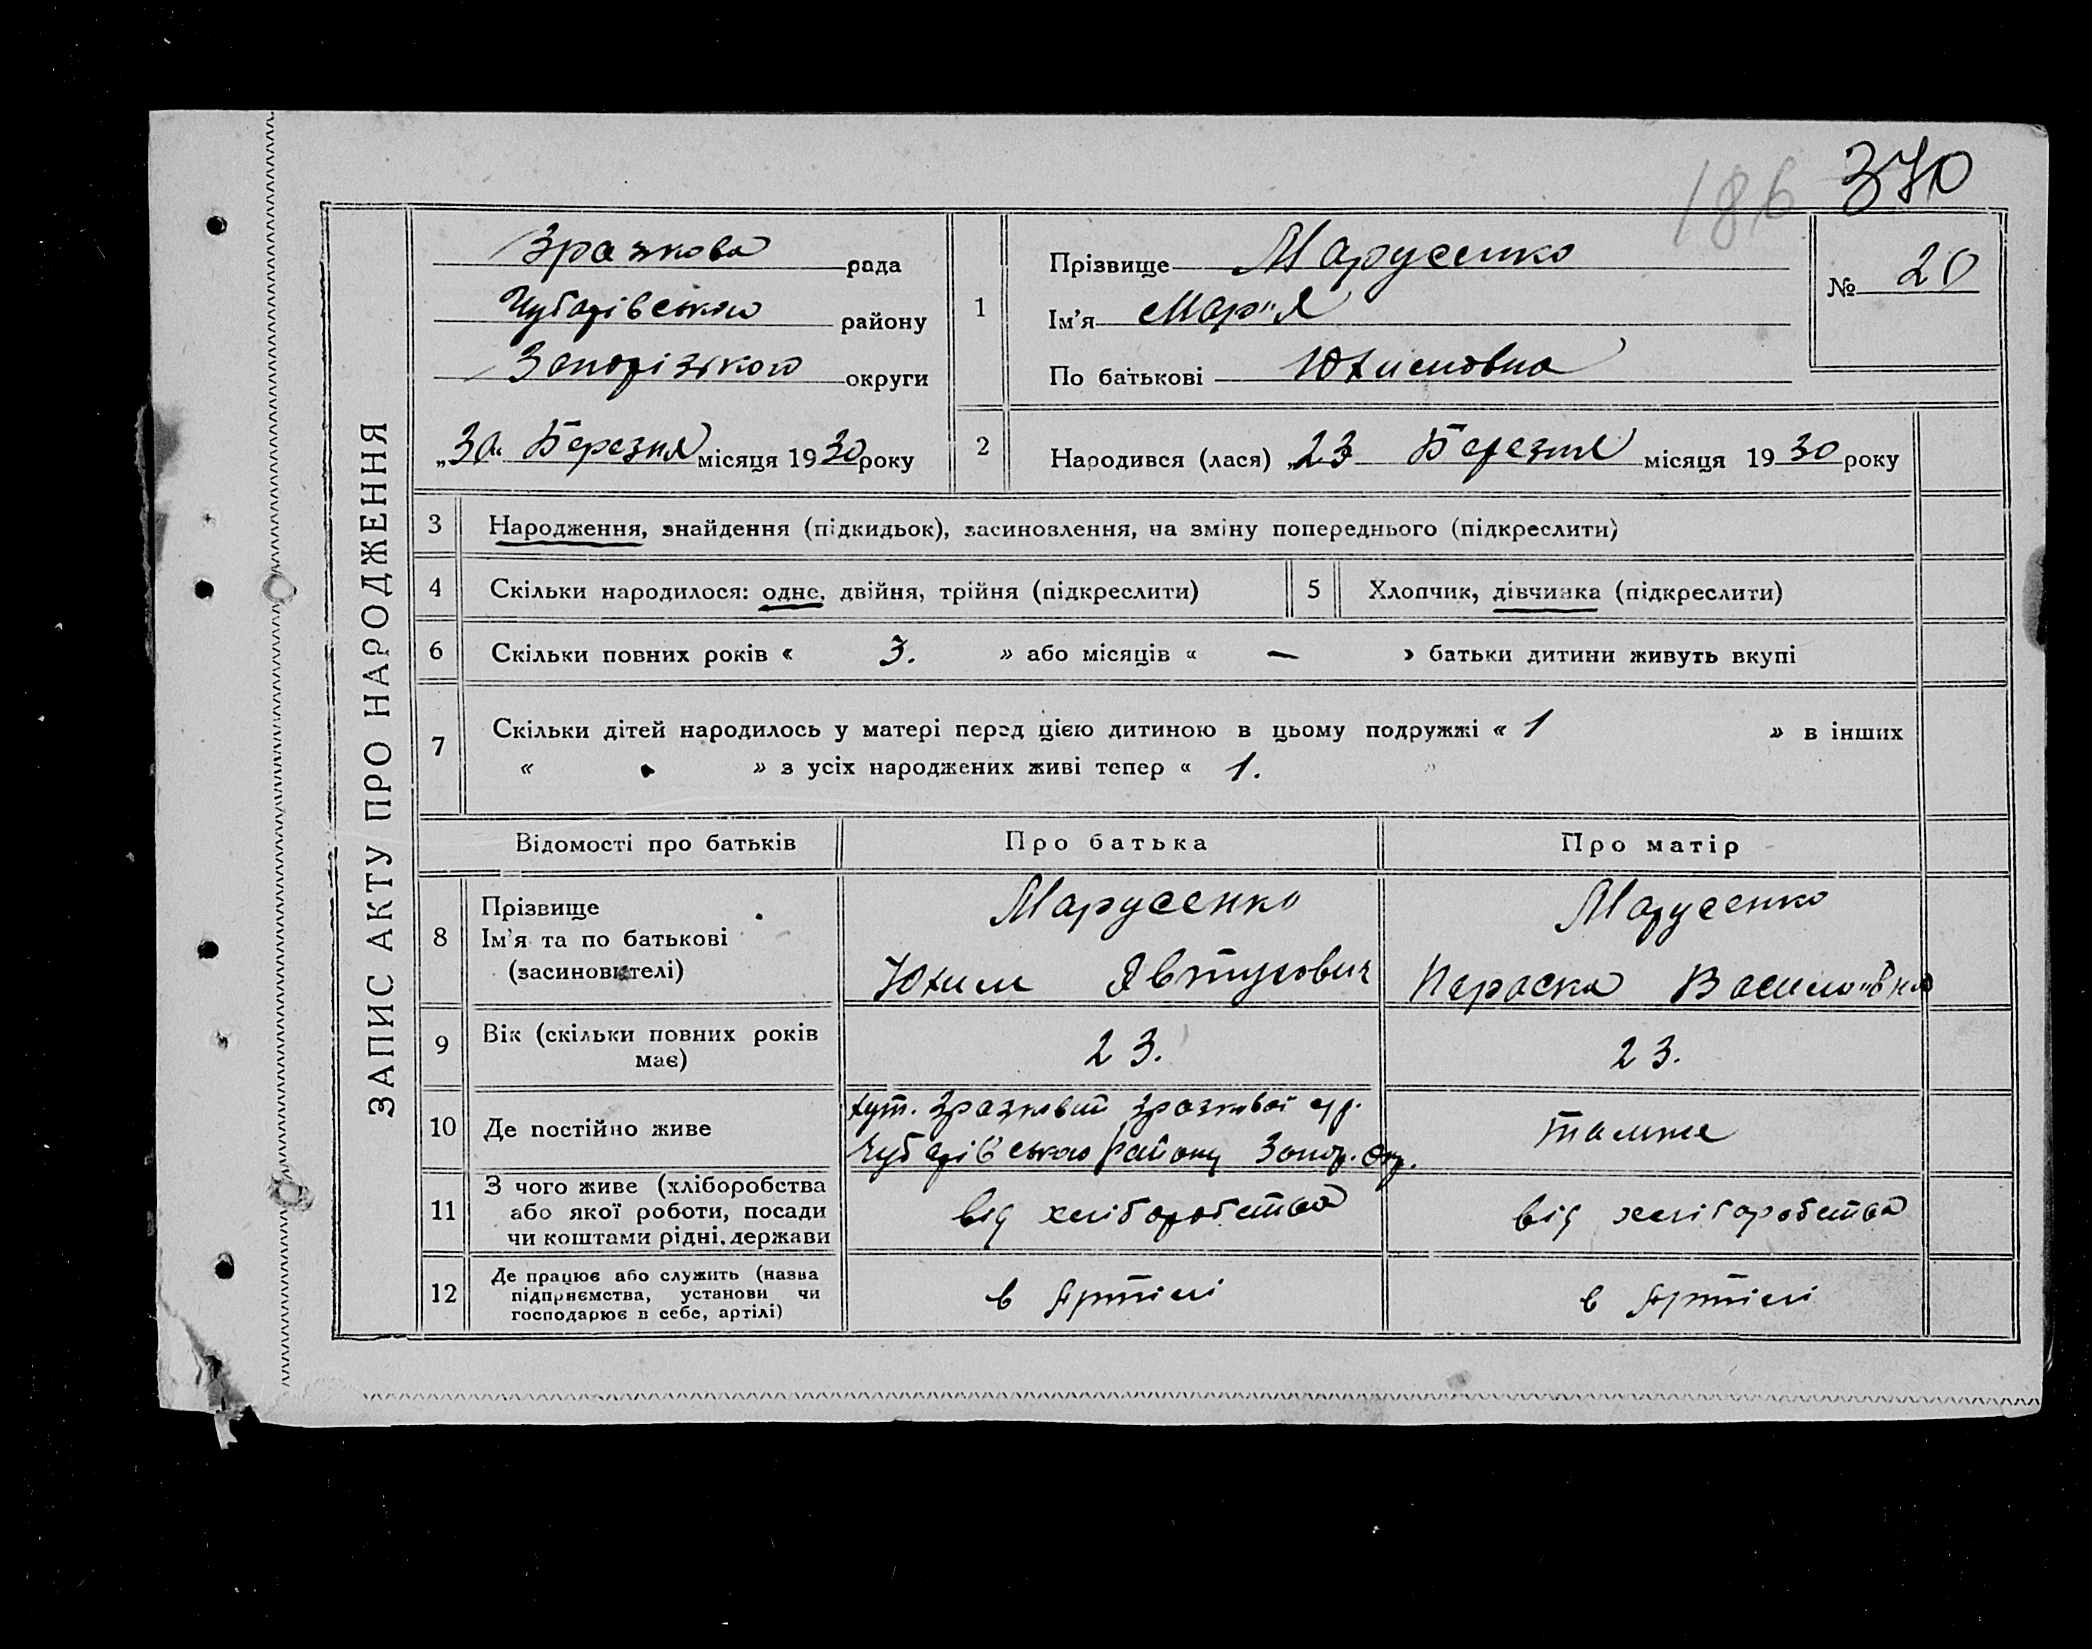 186 370
ЗАПИС АКТУ ПРО НАРОДЖЕННЯ
Зразкова рада
Чубарівського району
Запорізької округи
„30" Березня місяця 1930 року
1
Прізвище Марусенко
Ім'я Мар"я
По батькові Юхимовна
№ 20
2 Народився (лася) „23 Березня місяця 1930 року
3 Народження, знайдення (підкидьок), засиновлення, на зміну попереднього (підкреслити)
4 Скільки народилося: одне, двійня, трійня (підкреслити)
5 Хлопчик, дівчинка (підкреслити)
6 Скільки повних років « 3. » або місяців « — » батьки дитини живуть вкупі
7 Скільки дітей народилось у матері перед цією дитиною в цьому подружжі « 1 » в інших
« » з усіх народжених живі тепер « 1. »
Відомості про батьків Про батька Про матір
8 Прізвище
Ім'я та по батькові
(засиновителі)
Марусенко
Юхим Явтухович
Марусенко
Параска Василовна
9 Вік (скільки повних років
має)
23.
23.
10 Де постійно живе
хут. Зразковий Зразкової с/р.
Чубарівського району Запор. Окр.
тамже
11 З чого живе (хліборобства
або якої роботи, посади
чи коштами рідні, держави
від хліборобства
від хліборобства
12 Де працює або служить (назва
підприємства, установи чи
господарює в себе, артілі)
в Артілі
в Артілі